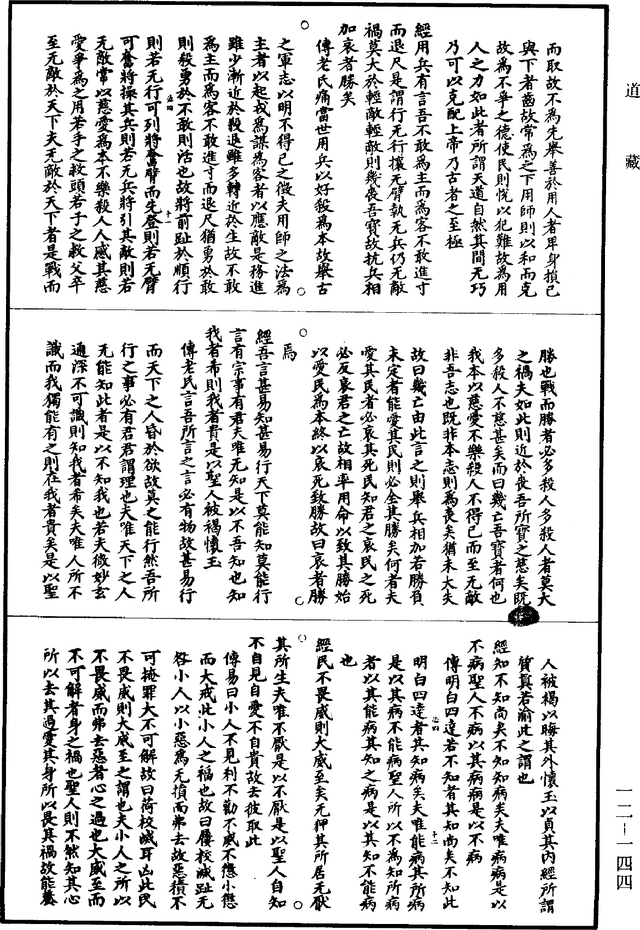 道藏
而取故不為先舉善於用人者卑身損己
與下者齒故常為之下用師則以和而克
故為不爭之德使民則悅以犯難故為用
人之力如此者所謂天道自然其間无巧
乃可以克配上帝乃古者之至極
經用兵有言吾不敢為主而為客不敢進寸
而退尺是謂行无行攘无臂執无兵仍无敵
禍莫大於輕敵輕敵則幾喪吾寶故抗兵相
加哀者勝矣
傳老氏痛當世用兵以好殺為本故舉古
之軍志以明不得已之微夫用師之法為
主者以起戎為謀為客者以應敵是務進
雖少漸近於殺退雖多轉近於生故不敢
為主而為客不敢進寸而退尺猶勇於敢
則殺勇於不敢則活也故將前趾於順行
則若无行可列將奮臂而先登則若无臂
可奮將操其兵則若无兵將引其敵則若
无敵常以慈愛為本不樂殺人人感其慈
愛爭為之用若手之救頭若子之救父卒
至无敵於天下夫无敵於天下者是戰而
勝也戰而勝者必多殺人多殺人者莫大
之禍夫如此則近於喪吾所寶之慈矣既
多殺人不慈甚矣而曰幾亡吾寶者何也
我本以慈愛不樂殺人不得已而至无敵
非吾志也既非本志則為喪矣猶未大失
故曰幾亡由此言之則舉兵相加若勝負
未定者能愛其民則必全其勝矣何者夫
愛其民者必哀其死民知君之哀民之死
必反哀君之亡故相率用命以致其勝始
以愛民為本終以哀死致勝故曰哀者勝
焉
經吾言甚易知甚易行天下莫能知莫能行
言有宗事有君夫唯无知是以不吾知也知
我者希則我者貴是以聖人被褐懷玉
傳老氏言吾所言之言必有物故甚易行
而天下之人昏於欲故莫之能行然吾所
行之事必有君君謂理也夫唯天下之人
无能知此者是以不知我也若夫微妙玄
通深不可識則知我者希矣夫唯人所不
識而我獨能有之則在我者貴矣是以聖
人被褐以晦其外懷玉以貞其內經所謂
質真若渝此之謂也
經知不知尚矣不知知病矣夫唯病病是以
不病聖人不病以其病病是以不病
傳明白四達若不知者其知尚矣不知此
明白四達者其知病矣夫唯能病其所病
是以其病不能病聖人所以不為知所病
者以其能病其知之病是以其知不能病
也
經民不畏威則大威至矣无狎其所居无厭
其所生夫唯不厭是以不厭是以聖人自知
不自見自愛不自貴故去彼取此
傳易曰小人不見利不勸不威不懲小懲
而大戒此小人之福也故曰屨校滅趾无
咎小人以小惡為无損而弗去故惡積不
可掩罪大不可解故曰荷校滅耳凶此民
不畏威則大威至之謂也夫小人之所以
不畏威而弗去惡者心之過也大威至而
不可解者身之禍也聖人則不然知其心
所以去其過愛其身所以畏其禍故能養
一二—一四四